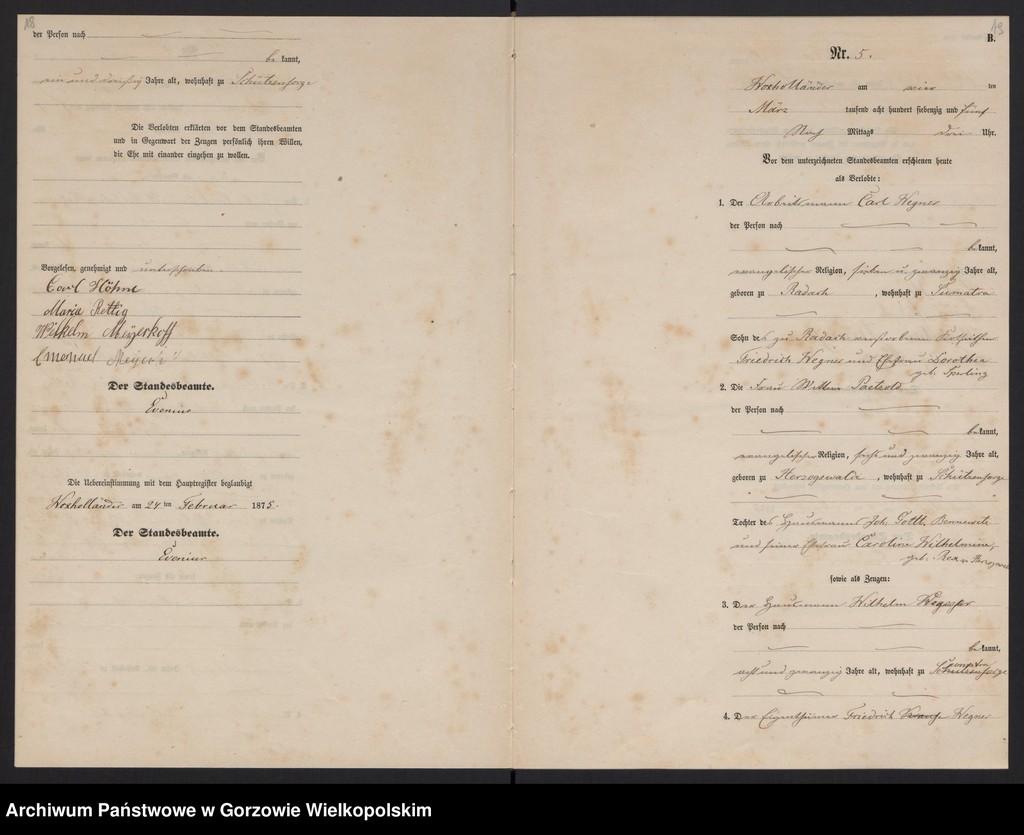 18
der Person nach
bekannt,
ein und dreißig Jahre alt, wohnhaft zu Schützensorge
Die Verlobten erklärten vor dem Standesbeamten
und in Gegenwart der Zeugen persönlich ihren Willen,
die Ehe mit einander eingehen zu wollen.
Vorgelesen, genehmigt und unterschrieben.
Carl Höhne
Maria Rettig
Wilhelm Meyerkoff
Emanuel
Der Standesbeamte.
Evenius
Die Uebereinstimmung mit dem Hauptregister beglaubigt
Woxholländer am 24 ten Februar 1875.
Der Standesbeamte.
Evenius
19
B.
Nr. 5.
Woxholländer am vier ten
März tausend acht hundert siebenzig und fünf
Nach Mittags drei Uhr.
Vor dem unterzeichneten Standesbeamten erschienen heute
als Verlobte:
1. Der Arbeitsmann Carl Wegner
der Person nach
bekannt,
evangelischer Religion, sieben u. zwanzig Jahre alt,
geboren zu Radach, wohnhaft zu Sumatra
Sohn des zu Radach verstorbenen
Friedrich Wegner und Ehefrau Dorothea
geb. Sperling
2. Die Frau Paetzold
der Person nach
bekannt,
evangelischer Religion, sechs und zwanzig Jahre alt,
geboren zu Herzogswalde, wohnhaft zu Schützensorge
Tochter des Hausmanns Joh. Gottl. Bennewitz
und seiner Ehefrau Caroline Wilhelmine,
geb. Rex
sowie als Zeugen:
3. Der Hausmann Wilhelm
der Person nach
bekannt,
acht und zwanzig Jahre alt, wohnhaft zu Sumatra
Schützensorge
4. Der Eigenthümer Friedrich Krause Wegner
Archiwum Państwowe w Gorzowie Wielkopolskim